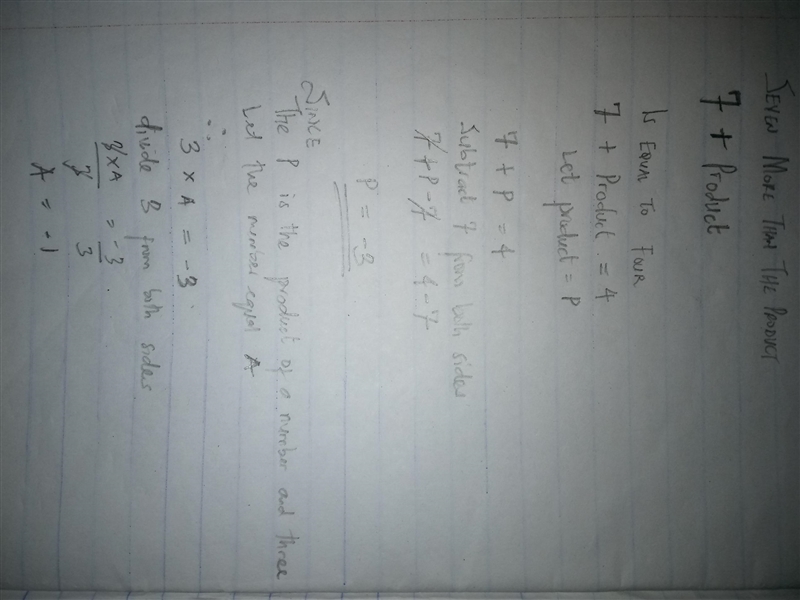 SEVEN MORE THAN THE PRODUCT
7 + Product
IS EQUAL TO FOUR
7 + Product = 4
Let product = P
7 + P = 4
Subtract 7 from both sides
7 + P - 7 = 4 - 7
P = -3
SINCE
The P is the product of a number and three
Let the number equal A
∴ 3 x A = -3
divide 3 from both sides
3 x A = -3
3 3
A = -1